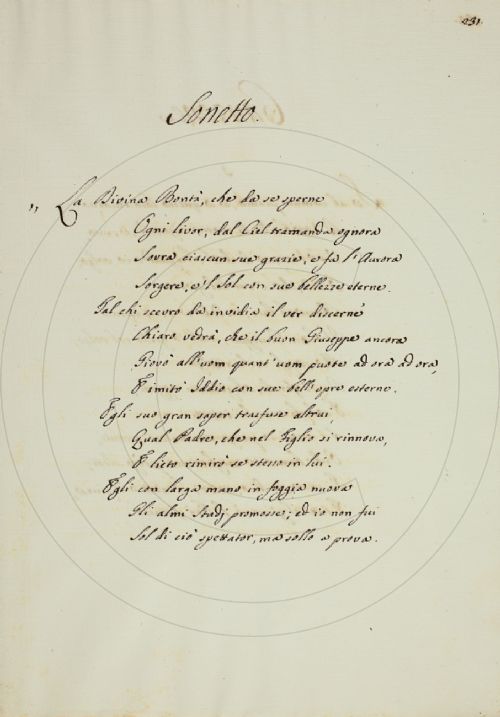 231
Sonetto.
„ La Divina Bontà, che da se sperne
Ogni livor, dal Ciel tramanda ognora
Sovra ciascun sue grazie; e fa l'Aurora
Sorgere, e 'l Sol con sue bellezze eterne.
Tal chi scevro da invidia il ver discerne
Chiaro vedrà, che il buon Giuseppe ancora
Giovò all'uom quant'uom puote ad ora ad ora,
E imitò Iddio con sue bell'opre esterne.
Egli suo gran saper trasfuse altrui,
Qual Padre, che nel Figlio si rinnova,
E lieto rimirò se stesso in lui.
Egli con larga mano in foggia nuova
Gli almi Studj promosse; ed io non fui
Sol di ciò spettator, ma sollo a prova.